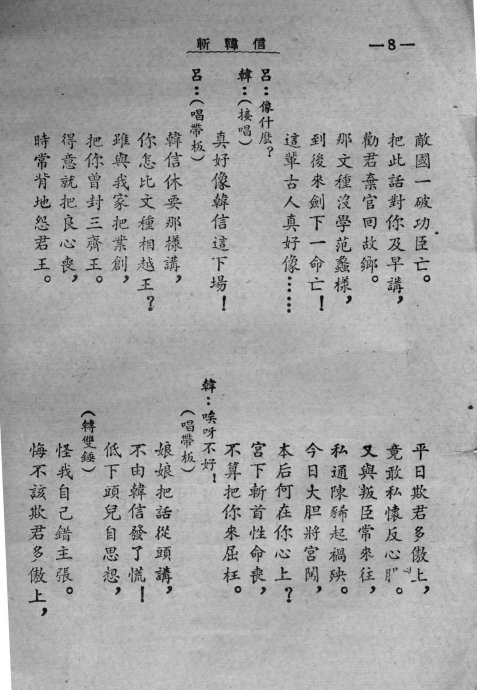 斬韓信
—8—
敵國一破功臣亡。
把此話對你及早講，
勸君棄官回故鄉。
那文種沒學范蠡樣，
到後來劍下一命亡！
這輩古人真好像……
呂：像什麽？
韓：（接唱）
真好像韓信這下場！
呂：（唱帶板）
韓信休要那樣講，
你怎比文種相越王？
雖與我家把業創，
把你曾封三齊王。
得意就把良心喪，
時常背地怨君王。
平日欺君多傲上，
竟敢私懷反心腸。
又與叛臣常來往，
私通陳豨起禍殃。
今日大胆將宮闖，
本后何在你心上？
宮下斬首性命喪，
不算把你來屈枉。
韓：唉呀不好！
（唱帶板）
娘娘把話從頭講，
不由韓信發了慌！
低下頭兒自思想，
（轉雙錘）
怪我自己錯主張。
悔不該欺君多傲上，